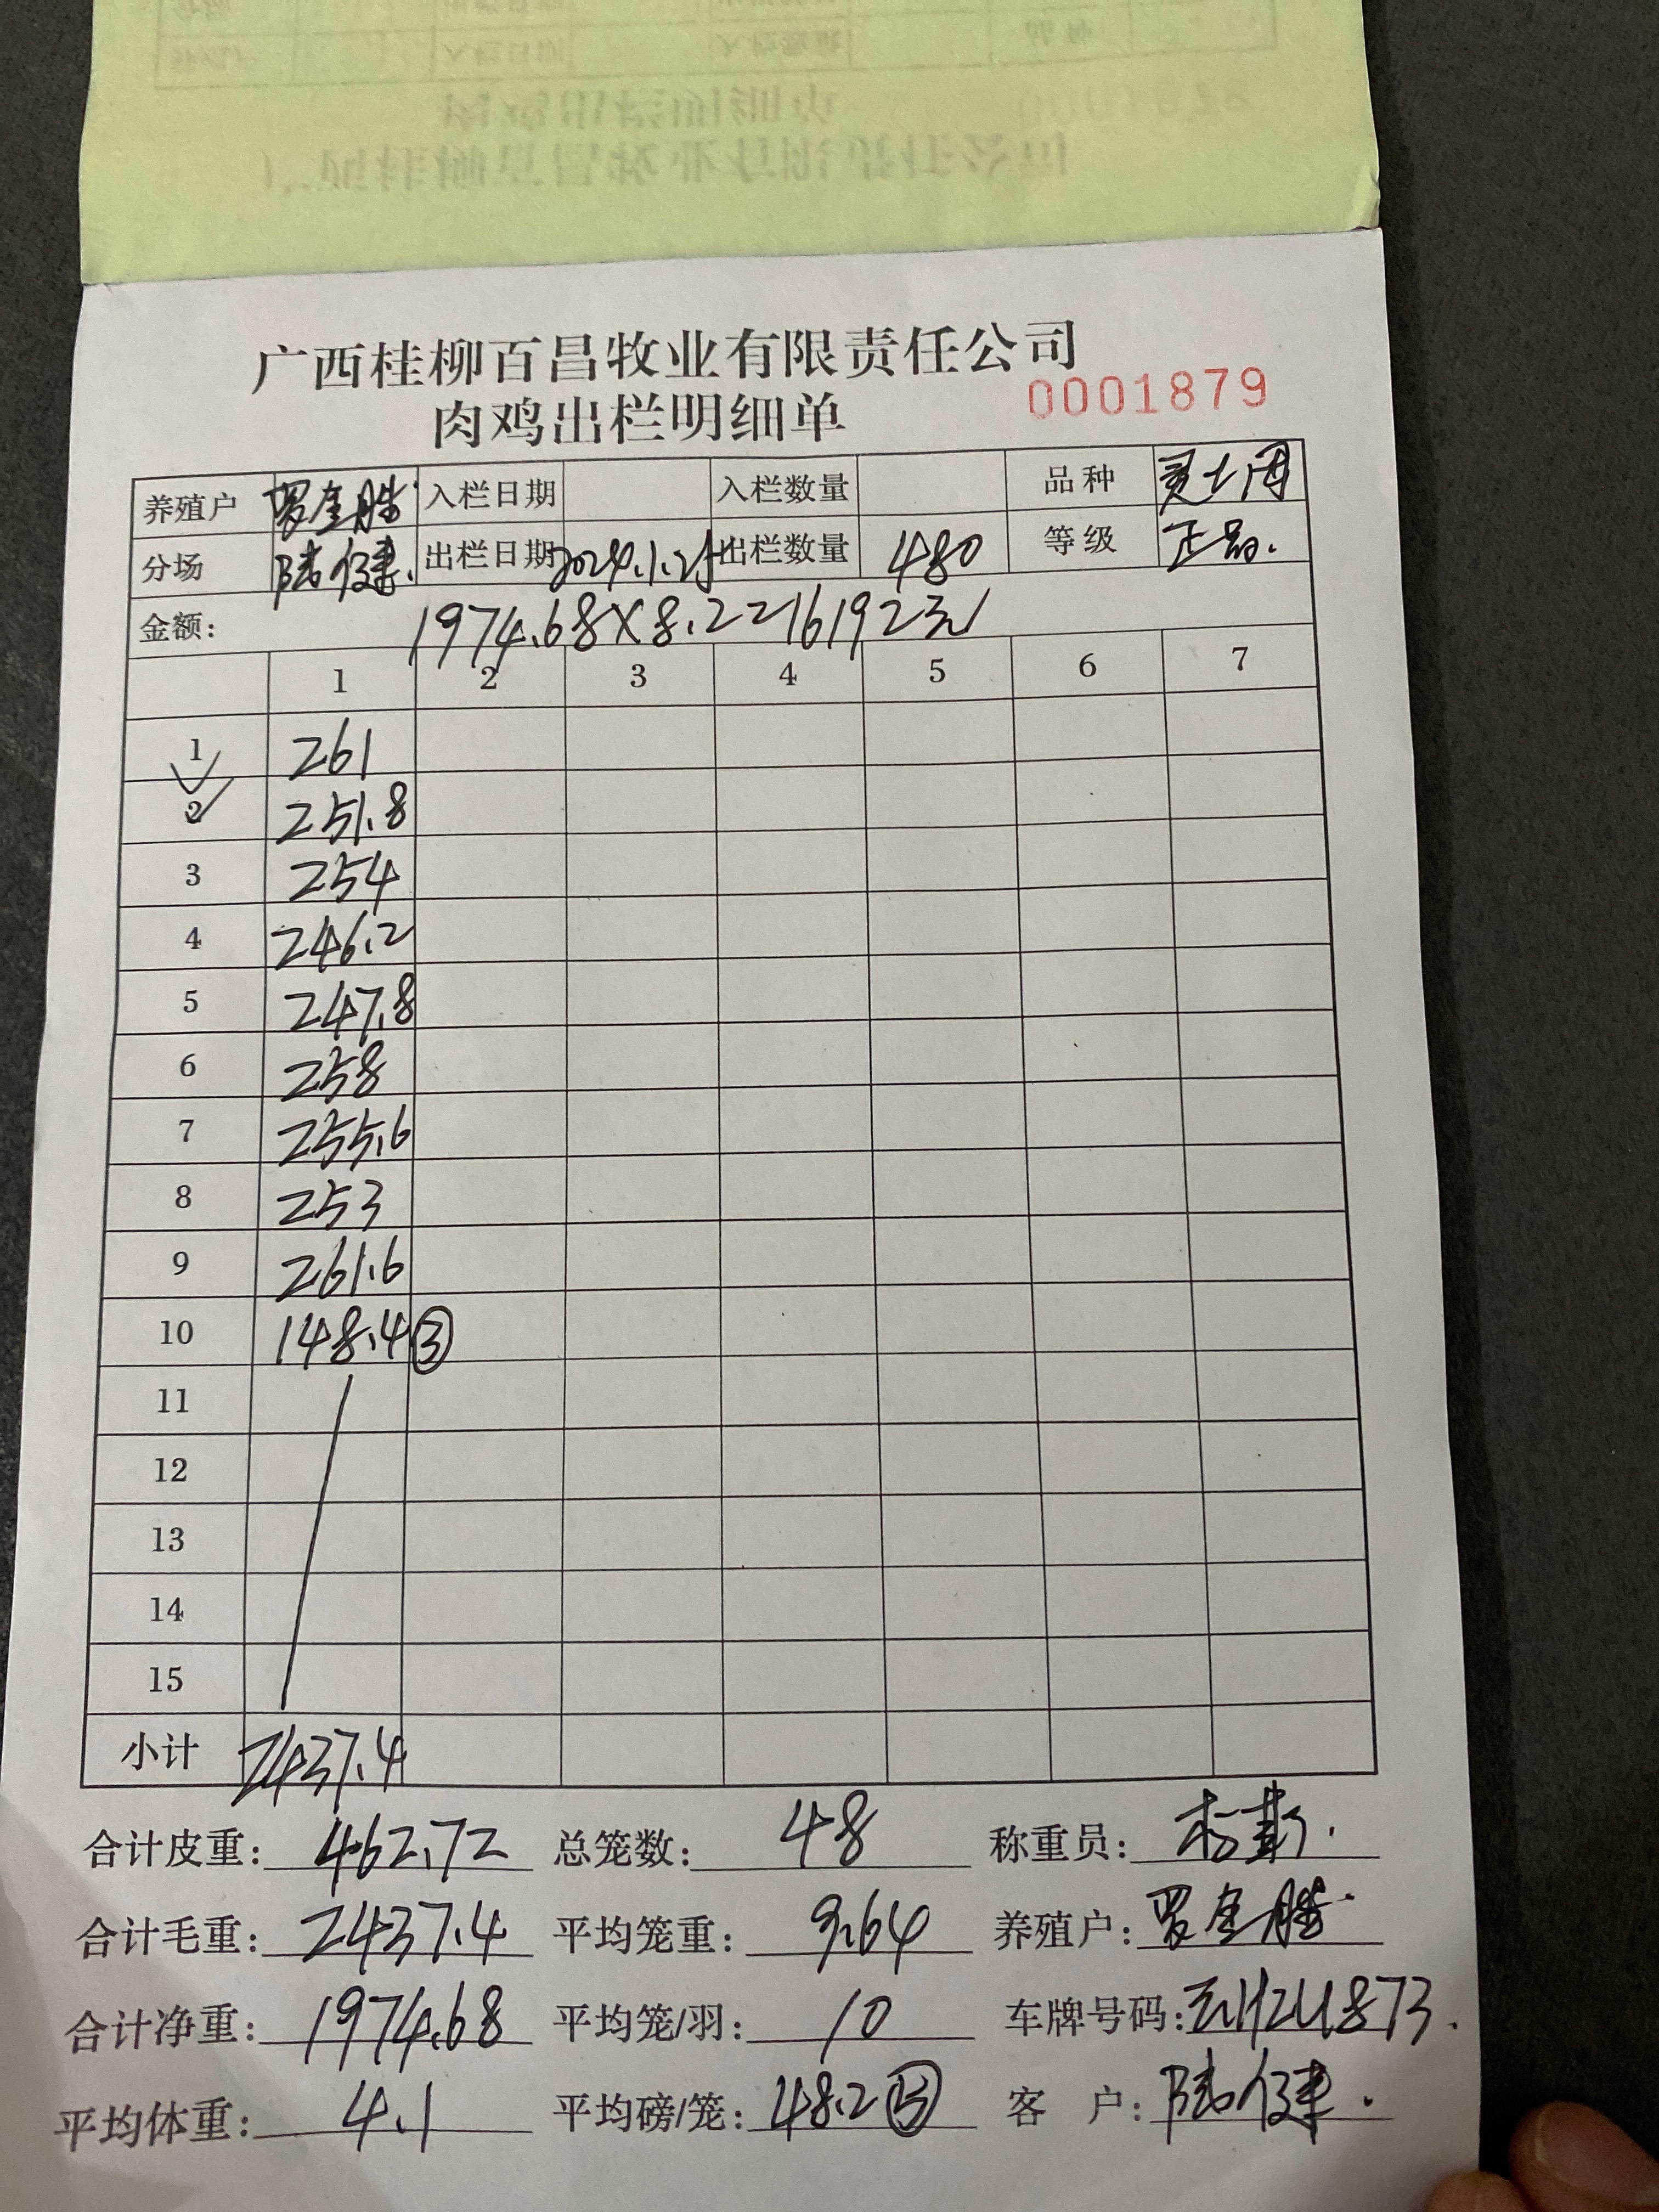 广西桂柳百昌牧业有限责任公司
肉鸡出栏明细单 0001879
养殖户 罗金胜 入栏日期 入栏数量 品种
分场 陆健. 出栏日期 2024.1.25 出栏数量 480 等级 正品.
金额: 1974.68×8.2=16192元
1 2 3 4 5 6 7
1 261
2 251.8
3 254
4 246.2
5 247.8
6 258
7 255.6
8 253
9 261.6
10 148.4 ③
11
12
13
14
15
小计 2437.4
合计皮重: 462.72 总笼数: 48 称重员:
合计毛重: 2437.4 平均笼重: 9.64 养殖户: 罗金胜
合计净重: 1974.68 平均笼/羽: 10 车牌号码:
平均体重: 4.1 平均磅/笼: 48.2 ⑤ 客 户: 陆健.